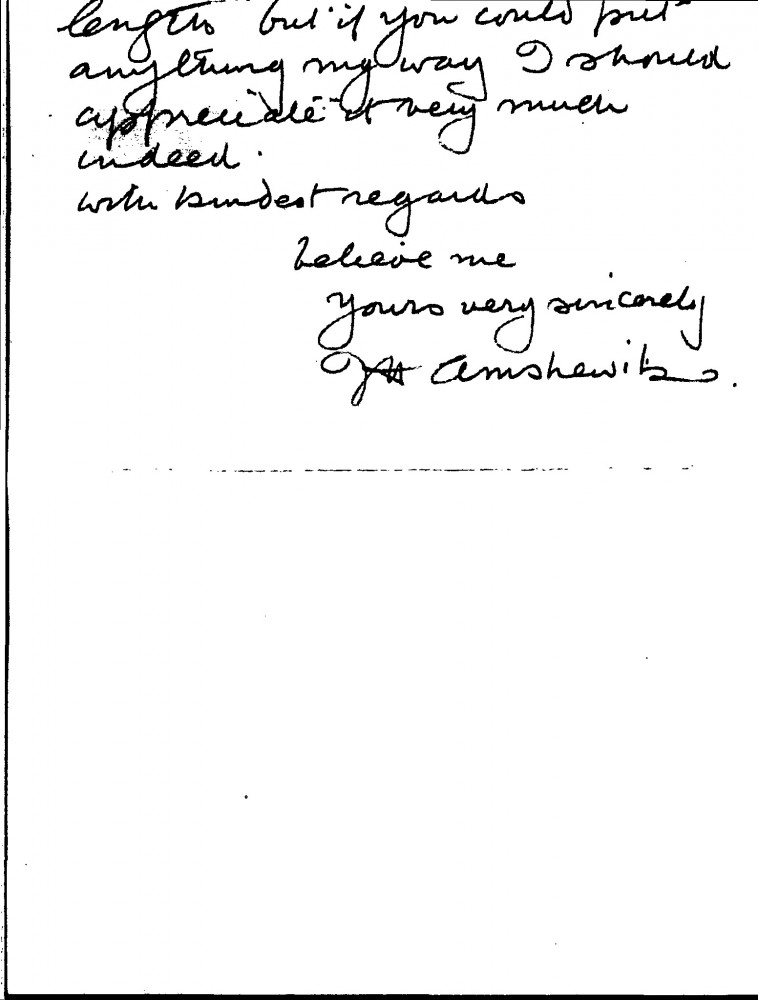 length but if you could put
anything my way I should
appreciate it very much
indeed.
with kindest regards
believe me
Yours very sincerely
JH Amshewitz.